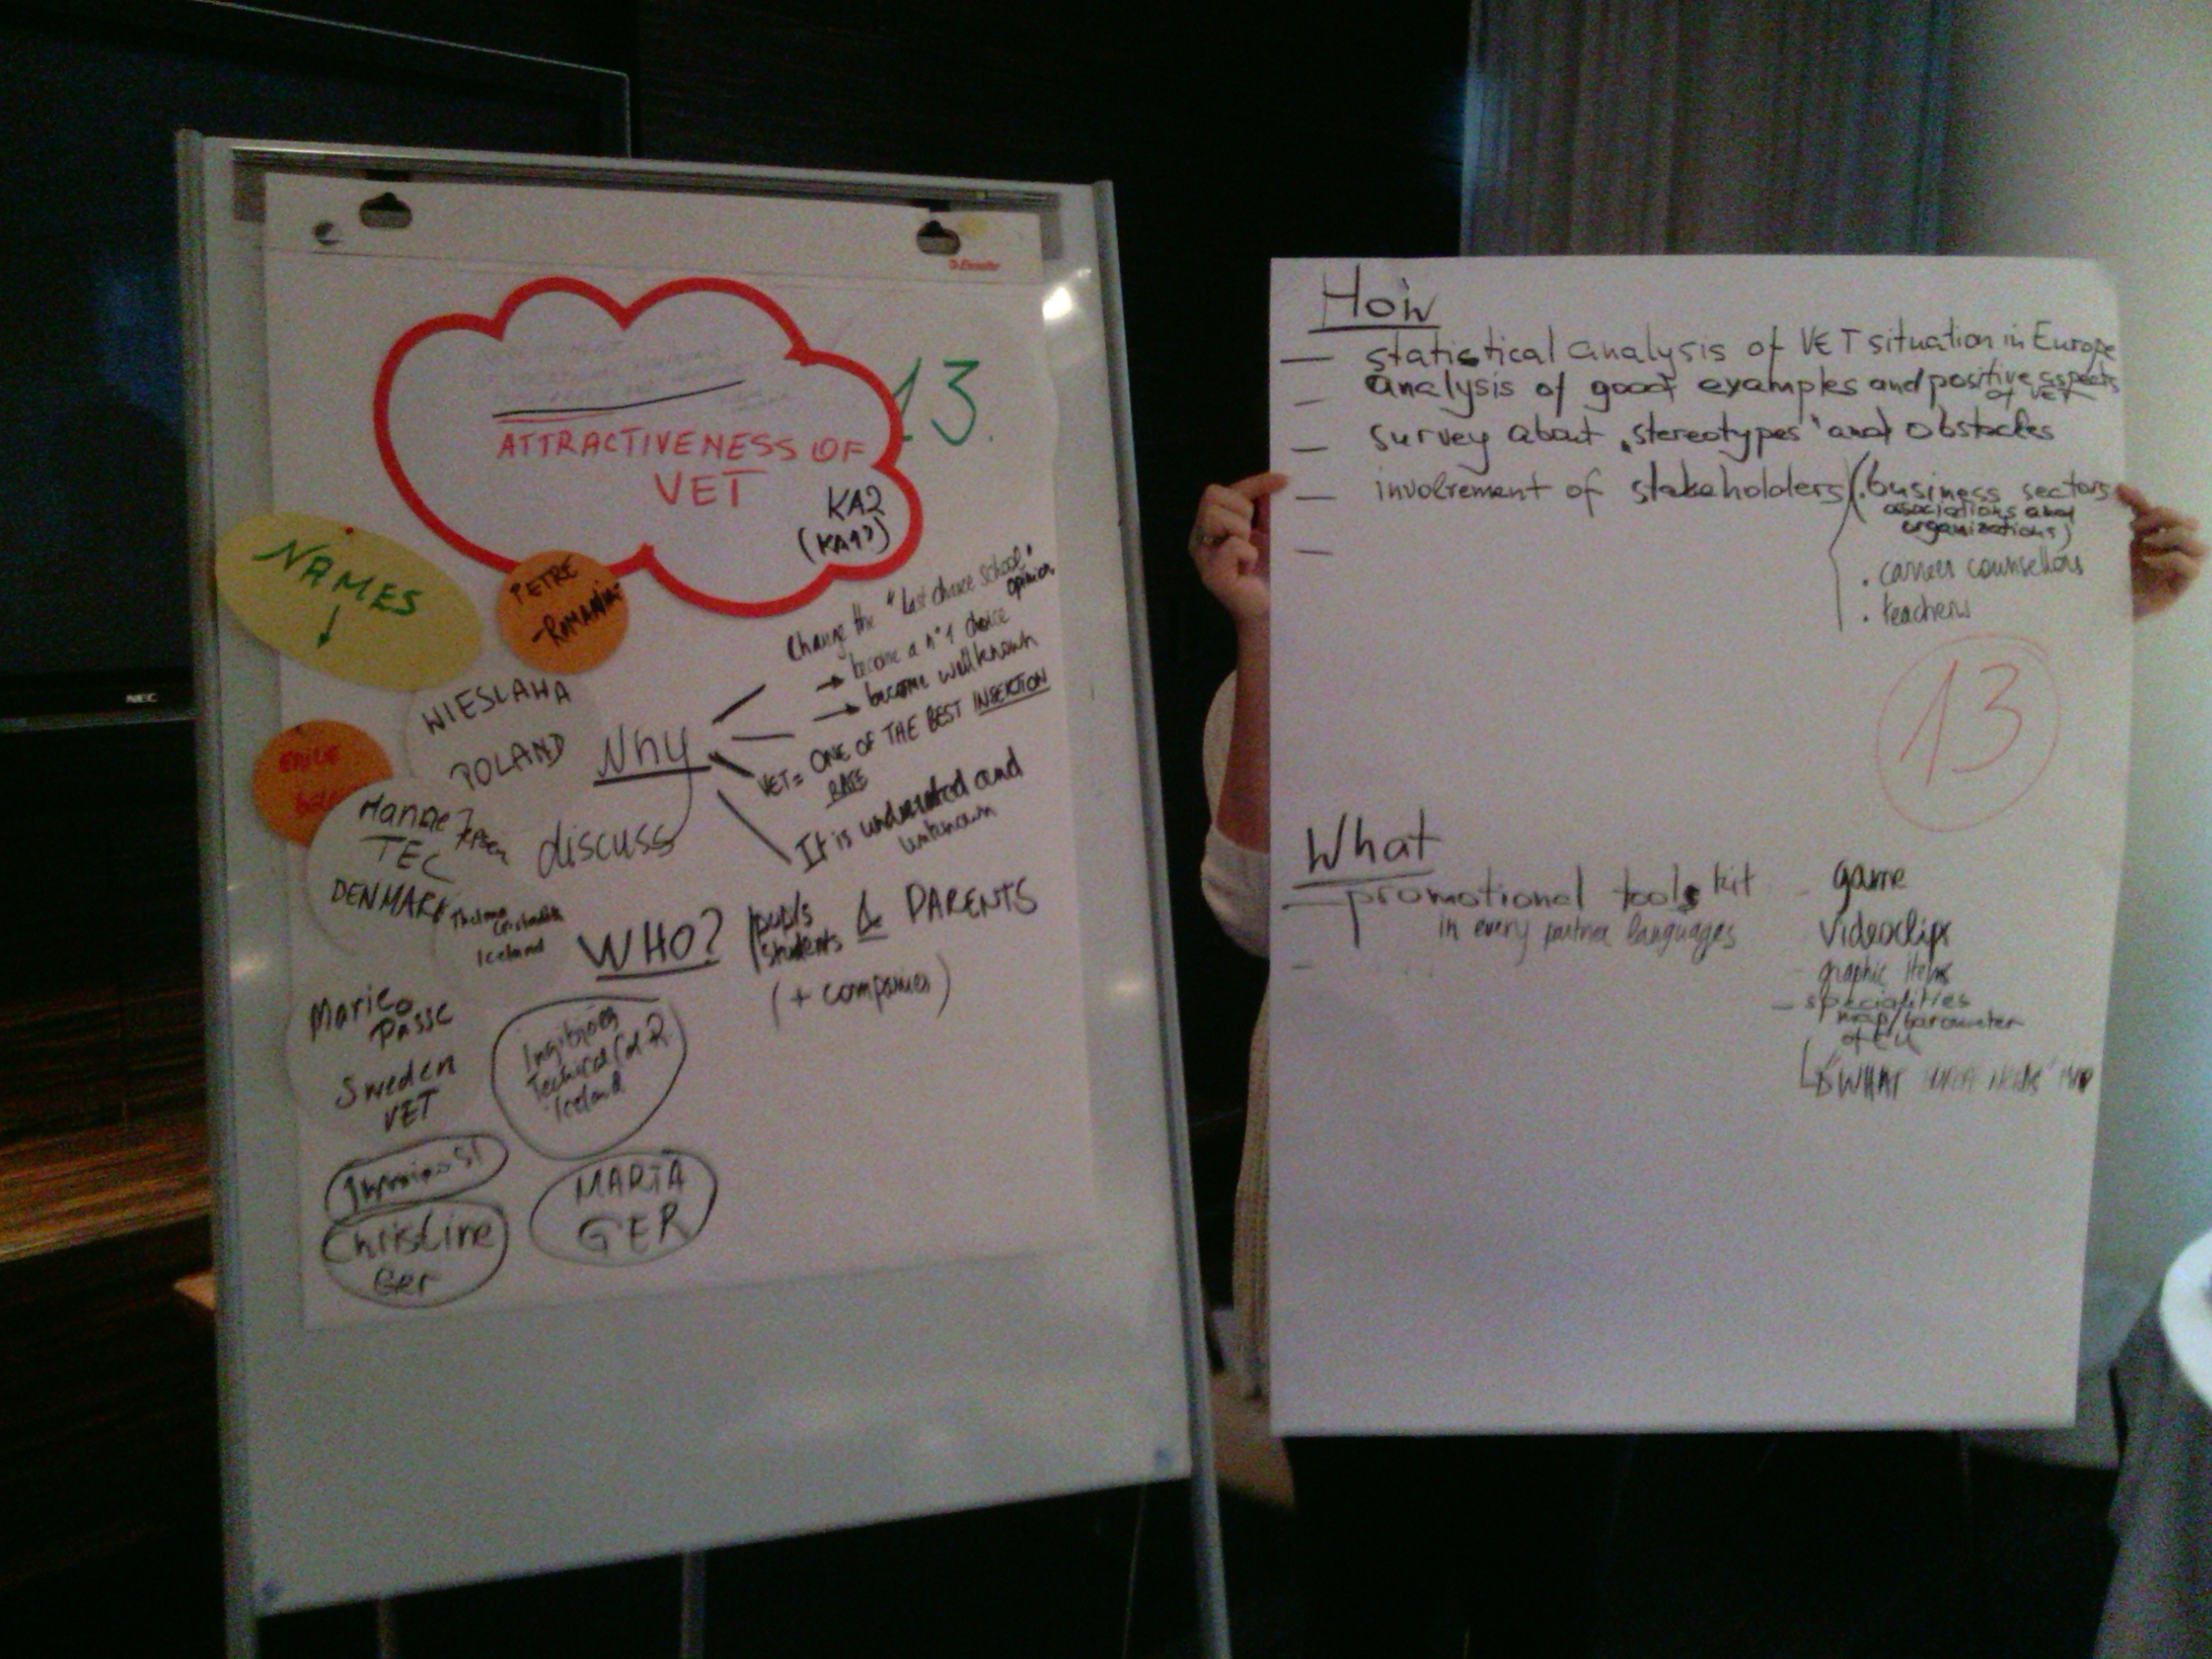 13.
ATTRACTIVENESS OF
VET
KA2
(KA1?)
NAMES
PETRE
-ROMANIA-
WIESLAWA
POLAND
Hanne
TEC
DENMARK
Iceland
Sweden
VET
Technical Col. R.
Iceland
Christine
Ger
MARTA
GER
Why
discuss
Change the "last chance school"
opinion
become a n°1 choice
become well known
VET = ONE OF THE BEST INSERTION
RATE
It is underrated and
unknown
WHO?
pupils
students
& PARENTS
(+ companies)
NEC
How
— statistical analysis of VET situation in Europe
— analysis of good examples and positive aspects
of VET
— survey about "stereotypes" and obstacles
— involvement of stakeholders (. business sectors
asociations and
organizations)
. carrers counsellors
. teachers
—
13
What
— promotional tools kit
in every partner languages
—
game
videoclips
graphic items
— specialities
map/barometer
of EU
WHAT